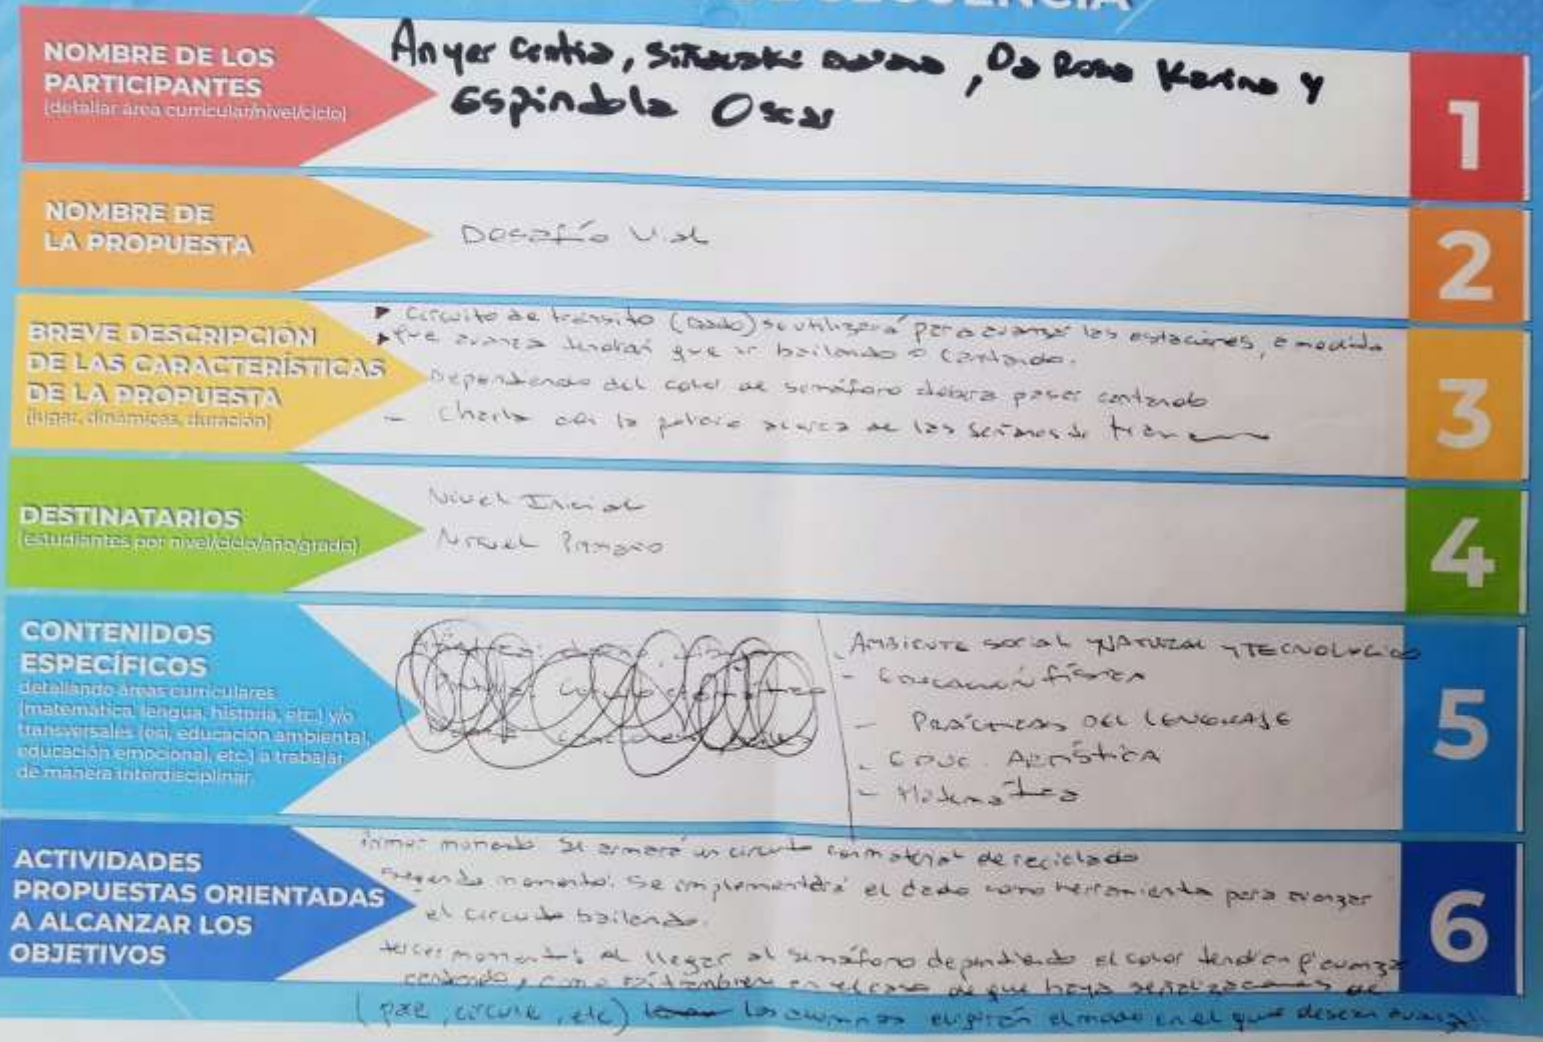 SECUENCIA
NOMBRE DE LOS
PARTICIPANTES
(detallar área curricular/nivel/ciclo)
Anyer Cintia, , Da Rosa Karina y
Espindola Oscar
1
NOMBRE DE
LA PROPUESTA
Desafío Vial
2
BREVE DESCRIPCIÓN
DE LAS CARACTERÍSTICAS
DE LA PROPUESTA
(lugar, dinámicas, duración)
Circuito de tránsito (Dado) se utilizará para avanzar las estaciones, a medida
que avanza tendrán que ir bailando o cantando.
Dependiendo del color de semáforo deberá pasar cantando
- Charla con la policia acerca de las señales de
3
DESTINATARIOS
(estudiantes por nivel/ciclo/año/grado)
Nivel Inicial
Nivel Primario
4
CONTENIDOS
ESPECÍFICOS
detallando áreas curriculares
(matemática, lengua, historia, etc.) y/o
transversales (esi, educación ambiental,
educación emocional, etc.) a trabajar
de manera interdisciplinar.
- AMBIENTE SOCIAL NATURAL Y TECNOLOGICO
- EDUCACIÓN FÍSICA
- PRÁCTICAS DEL LENGUAJE
- EDUC. ARTÍSTICA
- Matemática
5
ACTIVIDADES
PROPUESTAS ORIENTADAS
A ALCANZAR LOS
OBJETIVOS
Primer momento se armará un circuito con material de reciclado
Segundo momento: Se implementará el dado como herramienta para avanzar
el circuito bailando.
tercer momento: al llegar al semáforo dependiendo el color tendrán q' avanzar
cantando, como así tambien en el caso de que haya señalizaciones de
(pare, circule, etc) los alumnos elegirán el modo en el que desean avanzar.
6